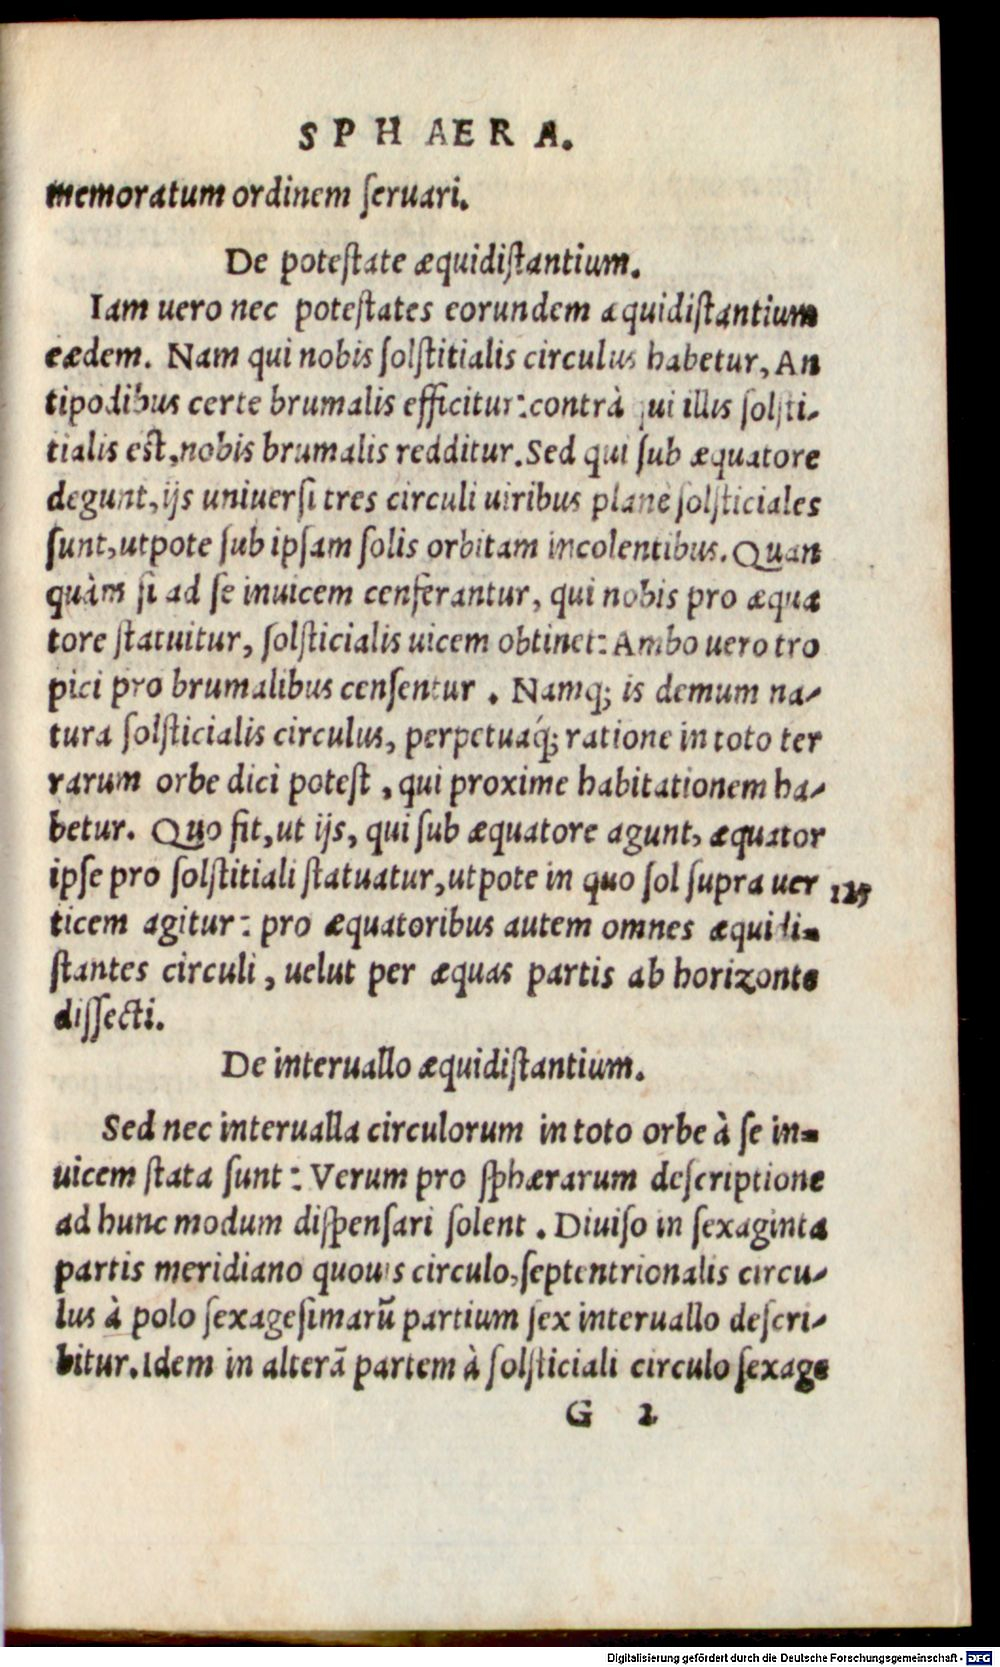 SPHAERA.
memoratum ordinem ſeruari.
De poteſtate æquidiſtantium.
Iam uero nec poteſtates eorundem æquidiſtantium
eædem. Nam qui nobis ſolſtitialis circulus habetur, An
tipodibus certe brumalis efficitur: contrà qui illis ſolſti-
tialis eſt, nobis brumalis redditur. Sed qui ſub æquatore
degunt, ijs uniuerſi tres circuli uiribus planè ſolſticiales
ſunt, utpote ſub ipſam ſolis orbitam incolentibus. Quan
quàm ſi ad ſe inuicem cenferantur, qui nobis pro æqua
tore ſtatuitur, ſolſticialis uicem obtinet: Ambo uero tro
pici pro brumalibus cenſentur. Namq; is demum na-
tura ſolſticialis circulus, perpetuaq́; ratione in toto ter
rarum orbe dici poteſt, qui proxime habitationem ha-
betur. Quo fit, ut ijs, qui ſub æquatore agunt, æquator
ipſe pro ſolſtitiali ſtatuatur, utpote in quo ſol ſupra uer
125
ticem agitur: pro æquatoribus autem omnes æquidi-
ſtantes circuli, uelut per æquas partis ab horizonte
diſſecti.
De interuallo æquidiſtantium.
Sed nec interualla circulorum in toto orbe à ſe in-
uicem ſtata ſunt: Verum pro ſphærarum deſcriptione
ad hunc modum diſpenſari ſolent. Diuiſo in ſexaginta
partis meridiano quouis circulo, ſeptentrionalis circu-
lus à polo ſexageſimarũ partium ſex interuallo deſcri-
bitur. Idem in alterã partem à ſolſticiali circulo ſexage
G 2
Digitalisierung gefördert durch die Deutsche Forschungsgemeinschaft - DFG